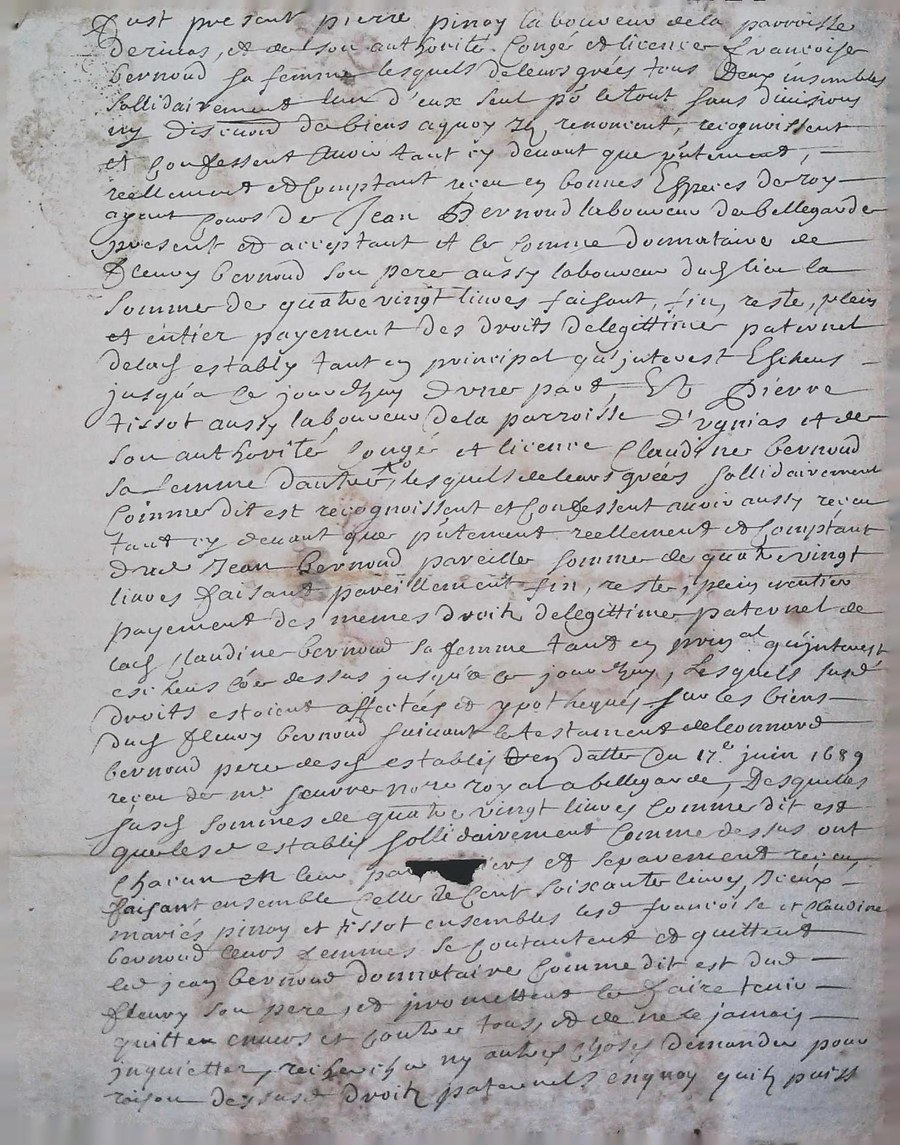 Fust present pierre pinoy laboureur dela parroisse
derinas, et de son authorité Congé et licence francoise
bernoud sa femme lesquels deleurs gréés tous Deux insembles
sollidairement lun d'eux seul po le tout sans divisions
ny discuord de biens aquoy Ilz renoncent, recognoissent
et Confessent Avoir tant cy devant que p'ntement, —
reellement et Comptant receu en bonnes Especes de roy —
ayant Cours de Jean Bernoud laboureur de bellegarde
present et acceptant et Comme donnataire de
fleury bernoud son pere aussy laboureur dud lieu la
somme de quatre vingt livres faisant, fin, reste, plein
et entier payement des droits delegittime paternel
delad establÿ tant en principal qu'jnterest Escheus —
jusqua Ce jourdhuy dune part, Et Pierre
tissot aussy laboureur dela parroisse d'ugnias et de
son authorité Congé et licence Claudine bernoud
sa femme dautre, lesquels deleurs gréés sollidairement
Comme dit est recognoissent et Confessent avoir aussy receu
tant cy devant que p'ntement reellement et Comptant
dud Jean Bernoud pareille somme de quatre vingt
livres faisant pareillement fin, reste, plein, & entier
payement des mémes droitz delegittime paternel de
lad Claudine bernoud sa femme tant en prin.al qu'jnterest
escheus Coe dessus jusqua ce jourdhuy, Lesquels susd
droits estoient affectées et ypothequés sur les biens —
dud fleury bernoud suivant le testament de leonnard
bernoud pere desd establis en datte du 17.e juin 1689
receu de me favre no're royal a bellegarde, Desquelles
susd sommes de quatre vingt livres Comme dit est
que lesd establis sollidairement Comme dessus ont
Chacun en leur et separement receu,
faisant ensemble Celle de Cent soixante livres, Iceux —
mariés pinoy et tissot ensembles lesd francoise et Claudine
bernoud leurs femmes se Contantent et quittent
led jean bernoud donnataire Comme dit est dud —
fleury son pere, et promettent le faire tenir —
quitte envers et Contre tous, et de ne le jamais —
jnquietter, rechercher ny autres choses demander pour
raison dessusd droitz paternels enquoy quilz puiss